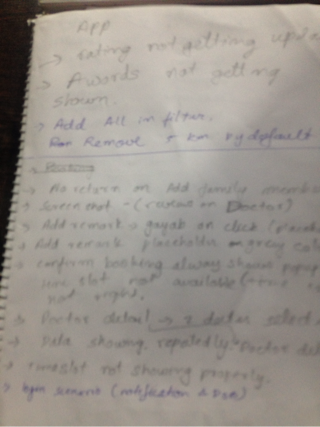 App
→ eating not getting upda
→ Awords not getting
shown.
→ Add All in filter.
Remove 5 km by default
→ No return on Add family membe
→ Screen shot - (reviews on Doctor)
→ Add remark → gayab on click (place
→ Add remark placeholder on grey col
→ confirm booking always shows popup
slot not available (time
not right.
→ Doctor detail → 2 doctor select
→ Data showing repeatedly. Doctor det
→ timeslot not showing properly.
→ login scenario (notification &